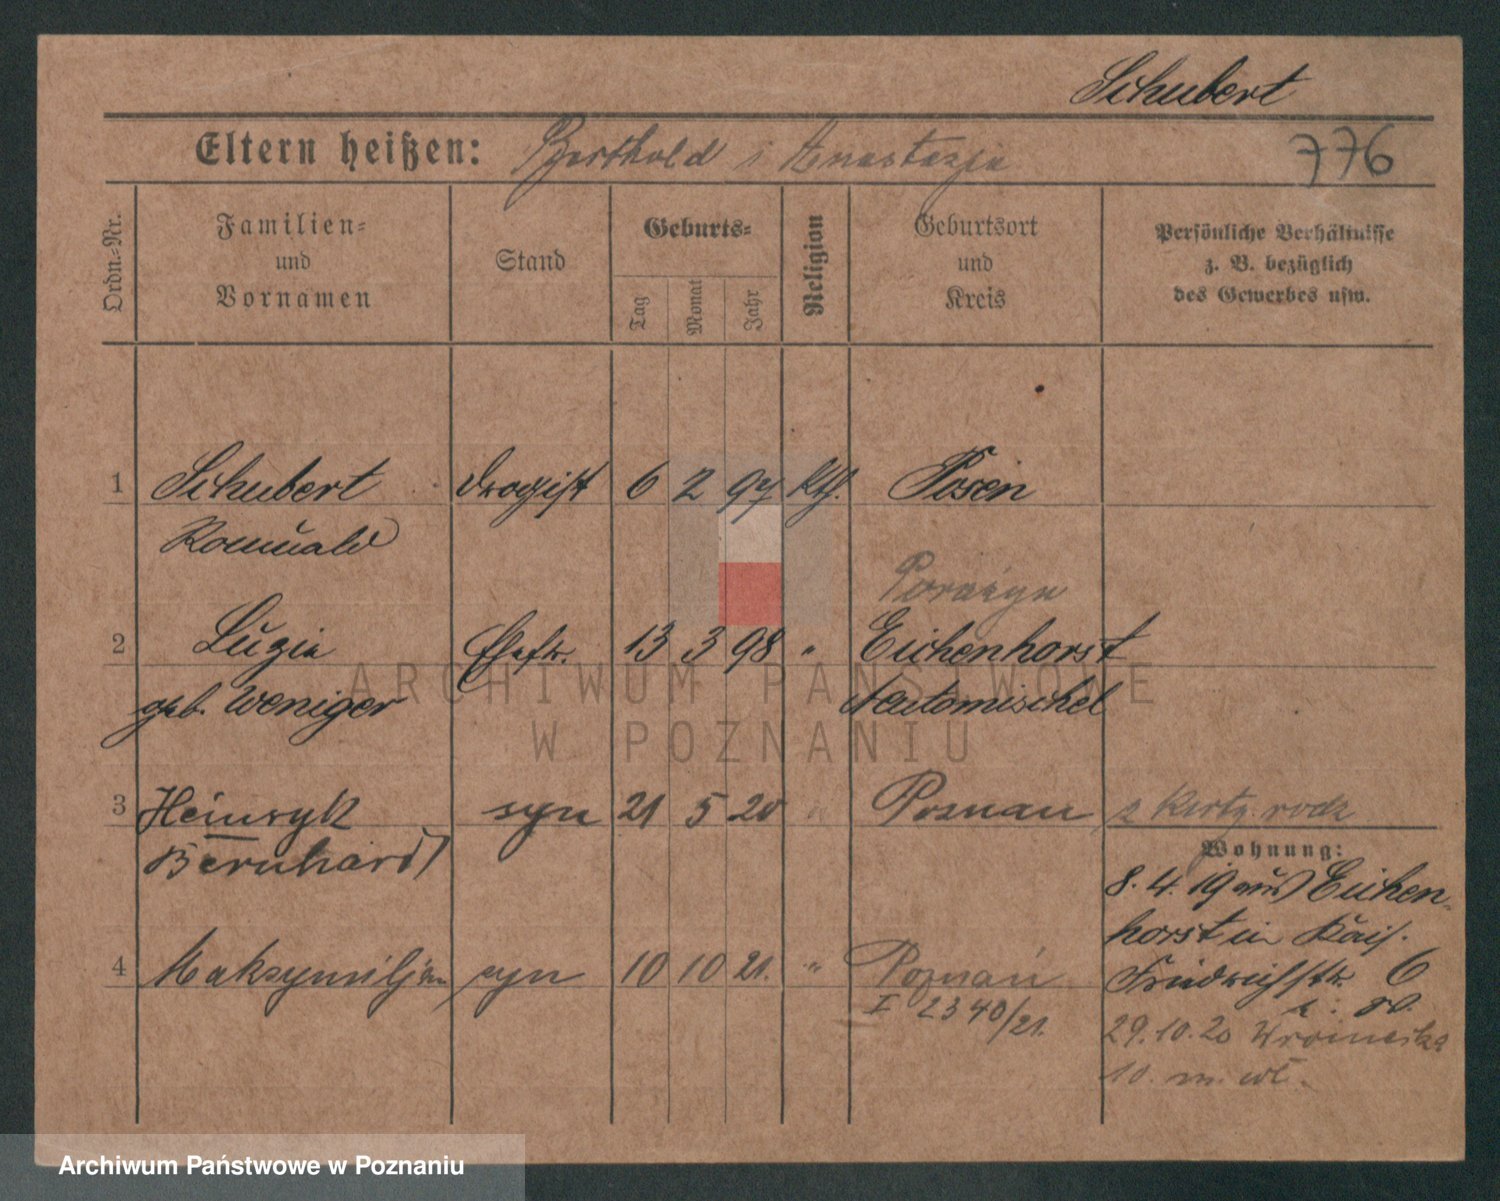 Schubert
Eltern heißen: Berthold i Anastazja
776
Ordn.-Nr.
Familien- und Vornamen
Stand
Geburts-
Tag
Monat
Jahr
Religion
Geburtsort und Kreis
Persönliche Verhältnisse z. B. bezüglich des Gewerbes usw.
1 Schubert Drogist 6 2 97 kth. Posen
Romuald
Porażyn
2 Luzia Ehefr. 13 3 98 " Eichenhorst
geb. Weniger Neutomischel
3 Heinryk syn 21 5 20 " Poznan z kertg. rodz
Bernhard
Wohnung:
8. 4. 19 aus Eichen-
horst in Kais.
4 Maksymiljan syn 10 10 21. " Poznań Friedrichstr. 6
I 2340/21.
29.10.20
10. m. wł.
ARCHIWUM PAŃSTWOWE
W POZNANIU
Archiwum Państwowe w Poznaniu